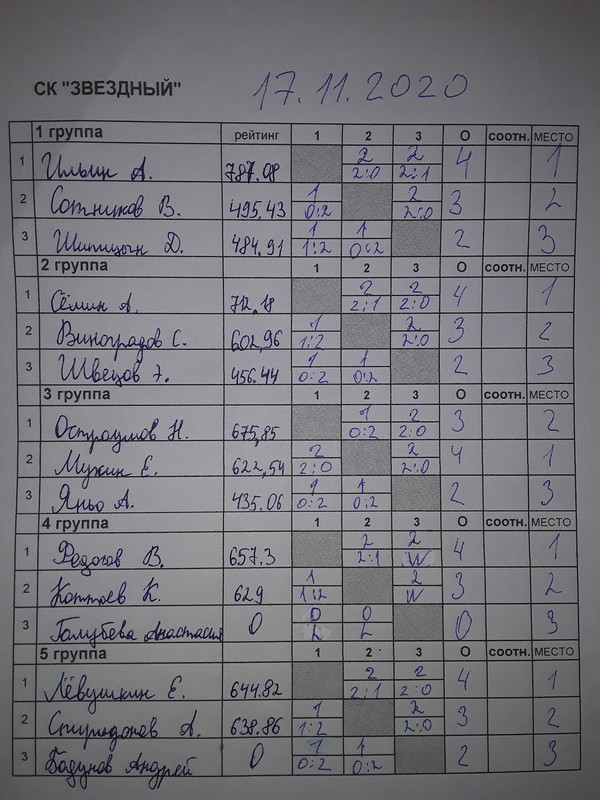 СК "ЗВЕЗДНЫЙ" 17.11.2020
1 группа рейтинг 1 2 3 О соотн. МЕСТО
1 Ильин А. 787.08 2 2:0 2 2:1 4 1
2 Сотников В. 495,43 1 0:2 2 2:0 3 2
3 Шипицын Д. 484,91 1 1:2 1 0:2 2 3
2 группа 1 2 3 О соотн. МЕСТО
1 Сёмин А. 712,18 2 2:1 2 2:0 4 1
2 Виноградов С. 602,96 1 1:2 2 2:0 3 2
3 Швецов 456.44 1 0:2 1 0:2 2 3
3 группа 1 2 3 О соотн. МЕСТО
1 Остроумов Н. 675,85 1 0:2 2 2:0 3 2
2 Мухин Е. 622,54 2 2:0 2 2:0 4 1
3 Яньо А. 435.06 1 0:2 1 0:2 2 3
4 группа 1 2 3 О соотн. МЕСТО
1 В. 657.3 2 2:1 2 W 4 1
2 К. 629 1 1:2 2 W 3 2
3 Голубева Анастасия 0 0 L 0 L 0 3
5 группа 1 2 3 О соотн. МЕСТО
1 Лёвушкин Е. 644.82 2 2:1 2 2:0 4 1
2 Спиридонов А. 638.86 1 1:2 2 2:0 3 2
3 Бодунов Андрей 0 1 0:2 1 0:2 2 3